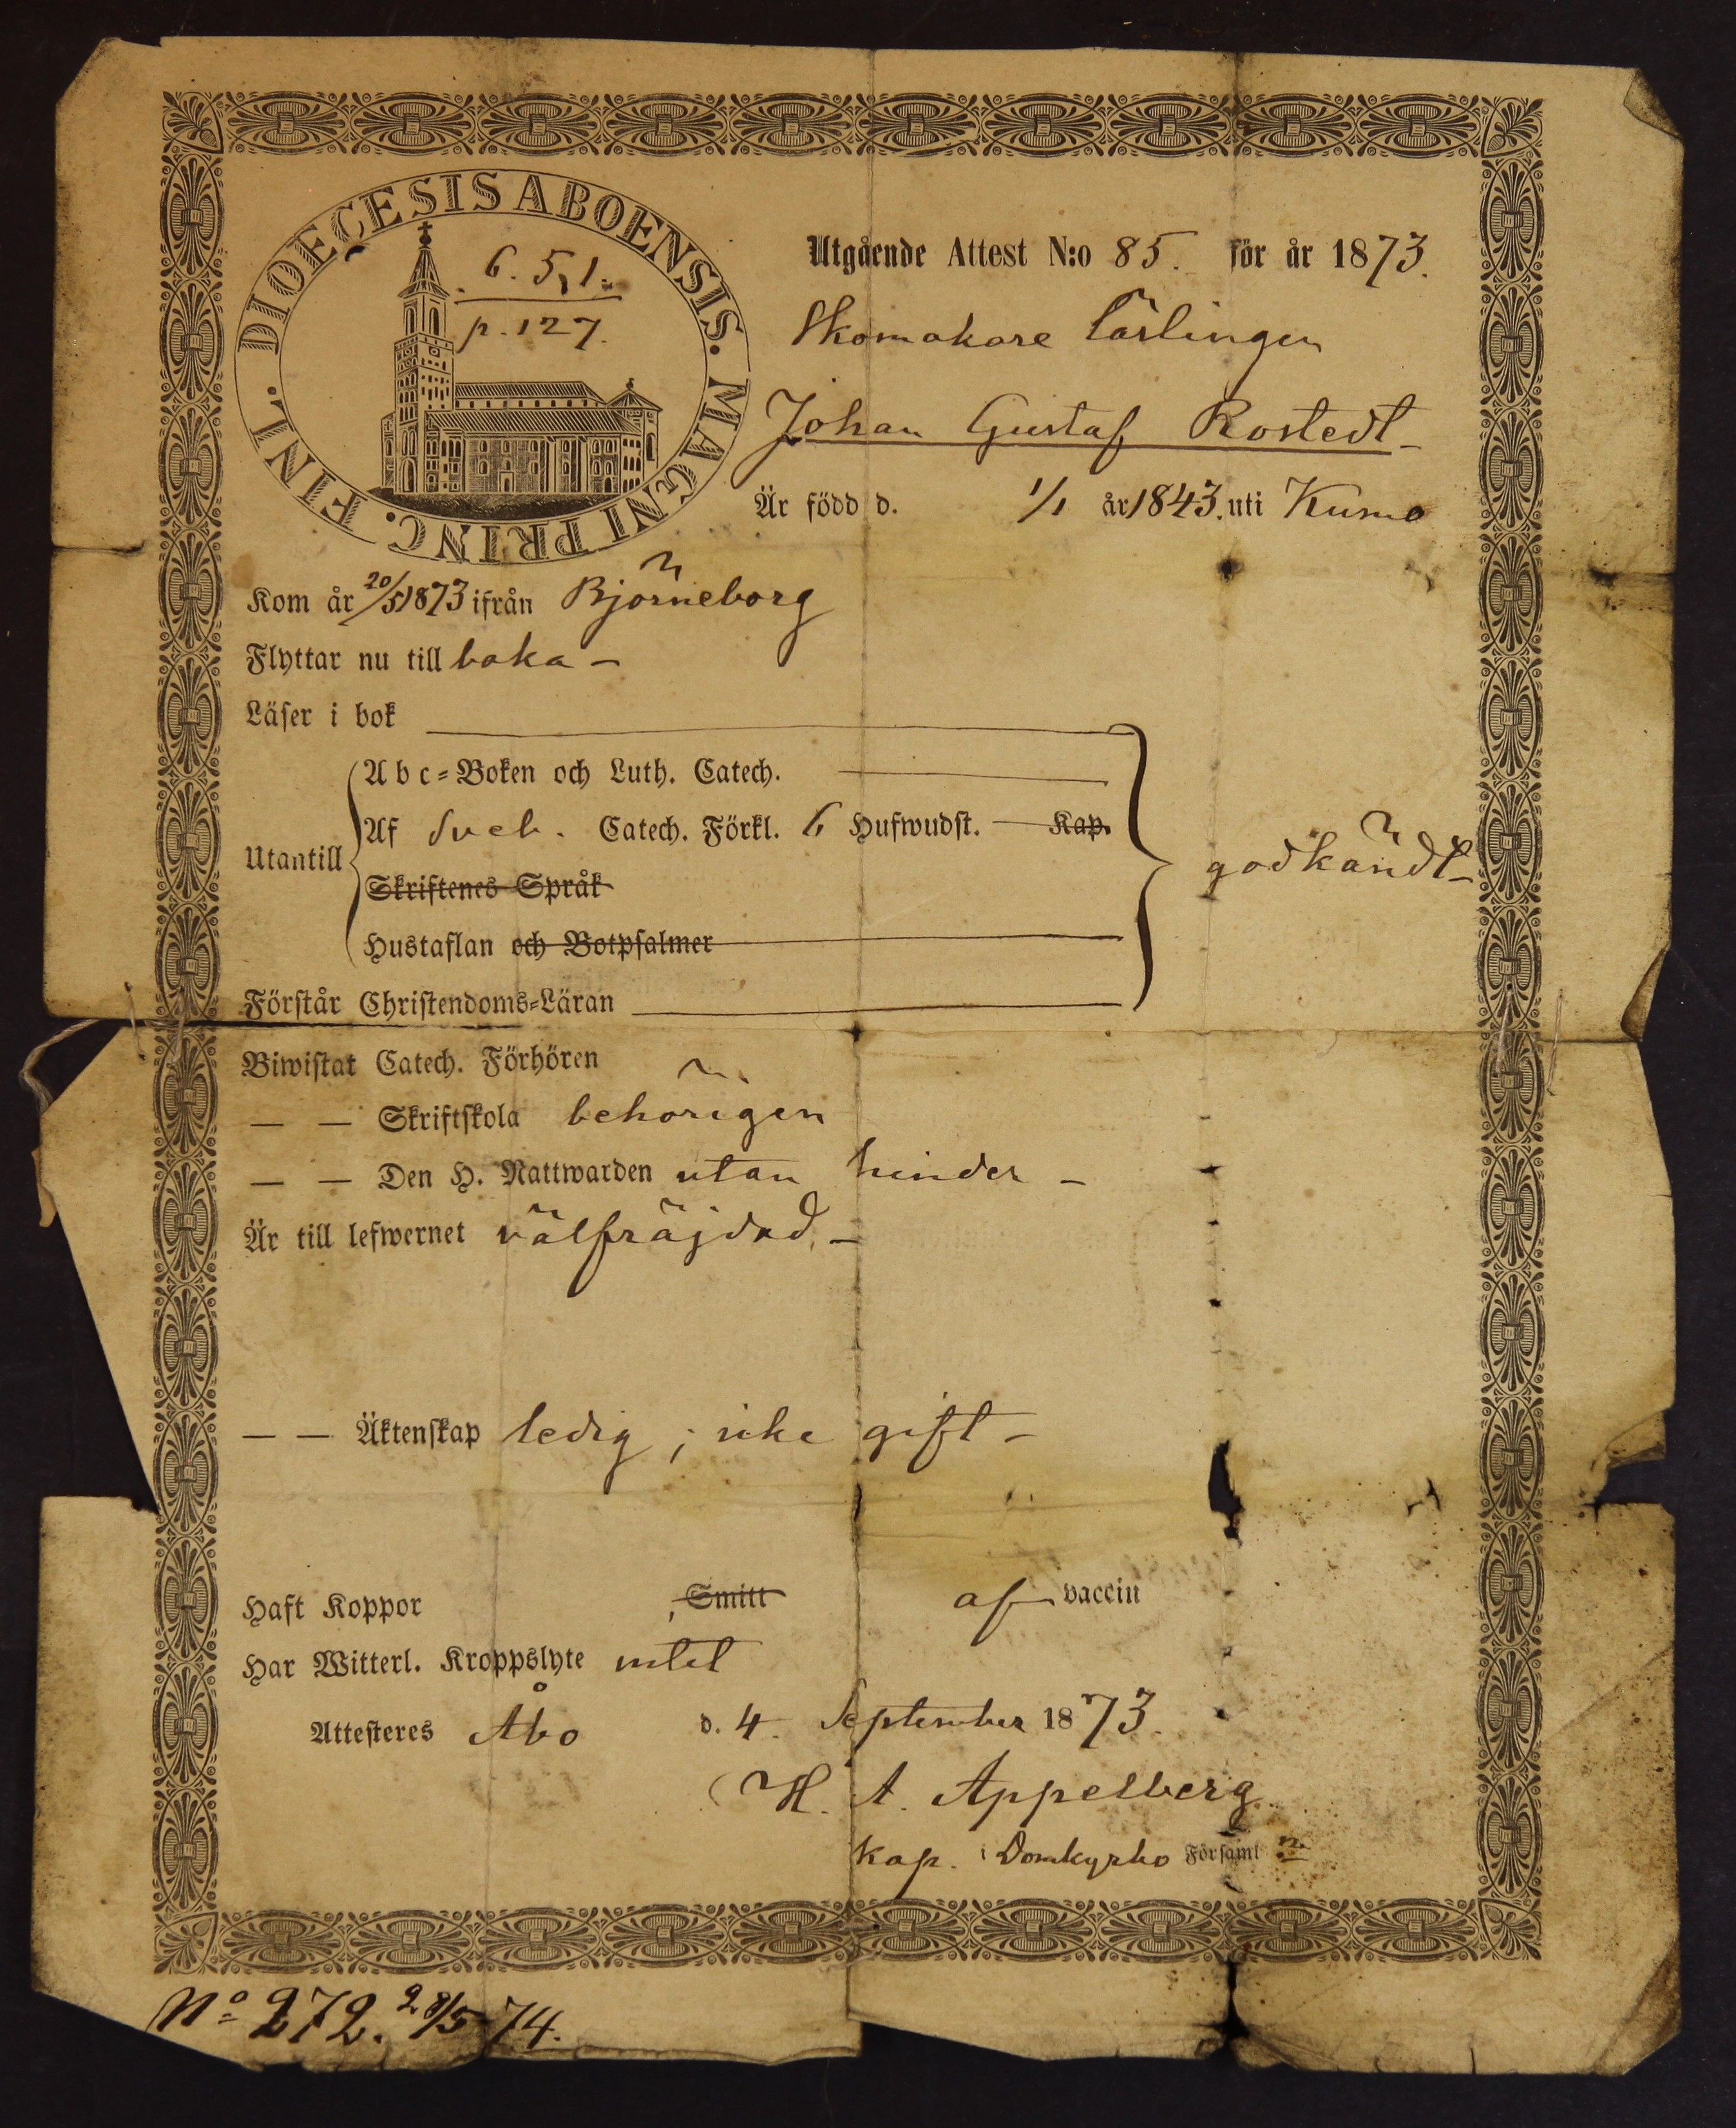 DIOECESIS ABOENSIS. MAGNI PRINC. FINL.
6. 5, 1.
p. 127.
Utgående Attest N:o 85. för år 1873.
Skomakare Lärlingen
Johan Gustaf Rostedt
Är född d. 1/1 år 1843. uti Kumo
Kom år 20/5 1873 ifrån Björneborg
Flyttar nu till baka –
Läser i bok
Utantill
Abc-Boken och Luth. Catech.
Af Sveb. Catech. Förkl. 6 Hufwudst. Kap.
Skriftenes Språk
Hustaflan och Botpsalmer
Förstår Christendoms-Läran
godkändt –
Biwistat Catech. Förhören
— — Skriftskola behörigen
— — Den H. Nattwarden utan hinder –
Är till lefwernet välfräjdad. –
— — Äktenskap ledig; icke gift –
Haft Koppor , Smitt af vaccin
Har Witterl. Kroppslyte intet
Attesteres Åbo d. 4. September 1873.
H. A. Appelberg
Kap. i Domkyrko Församl n.
No 272. 28/5 74.